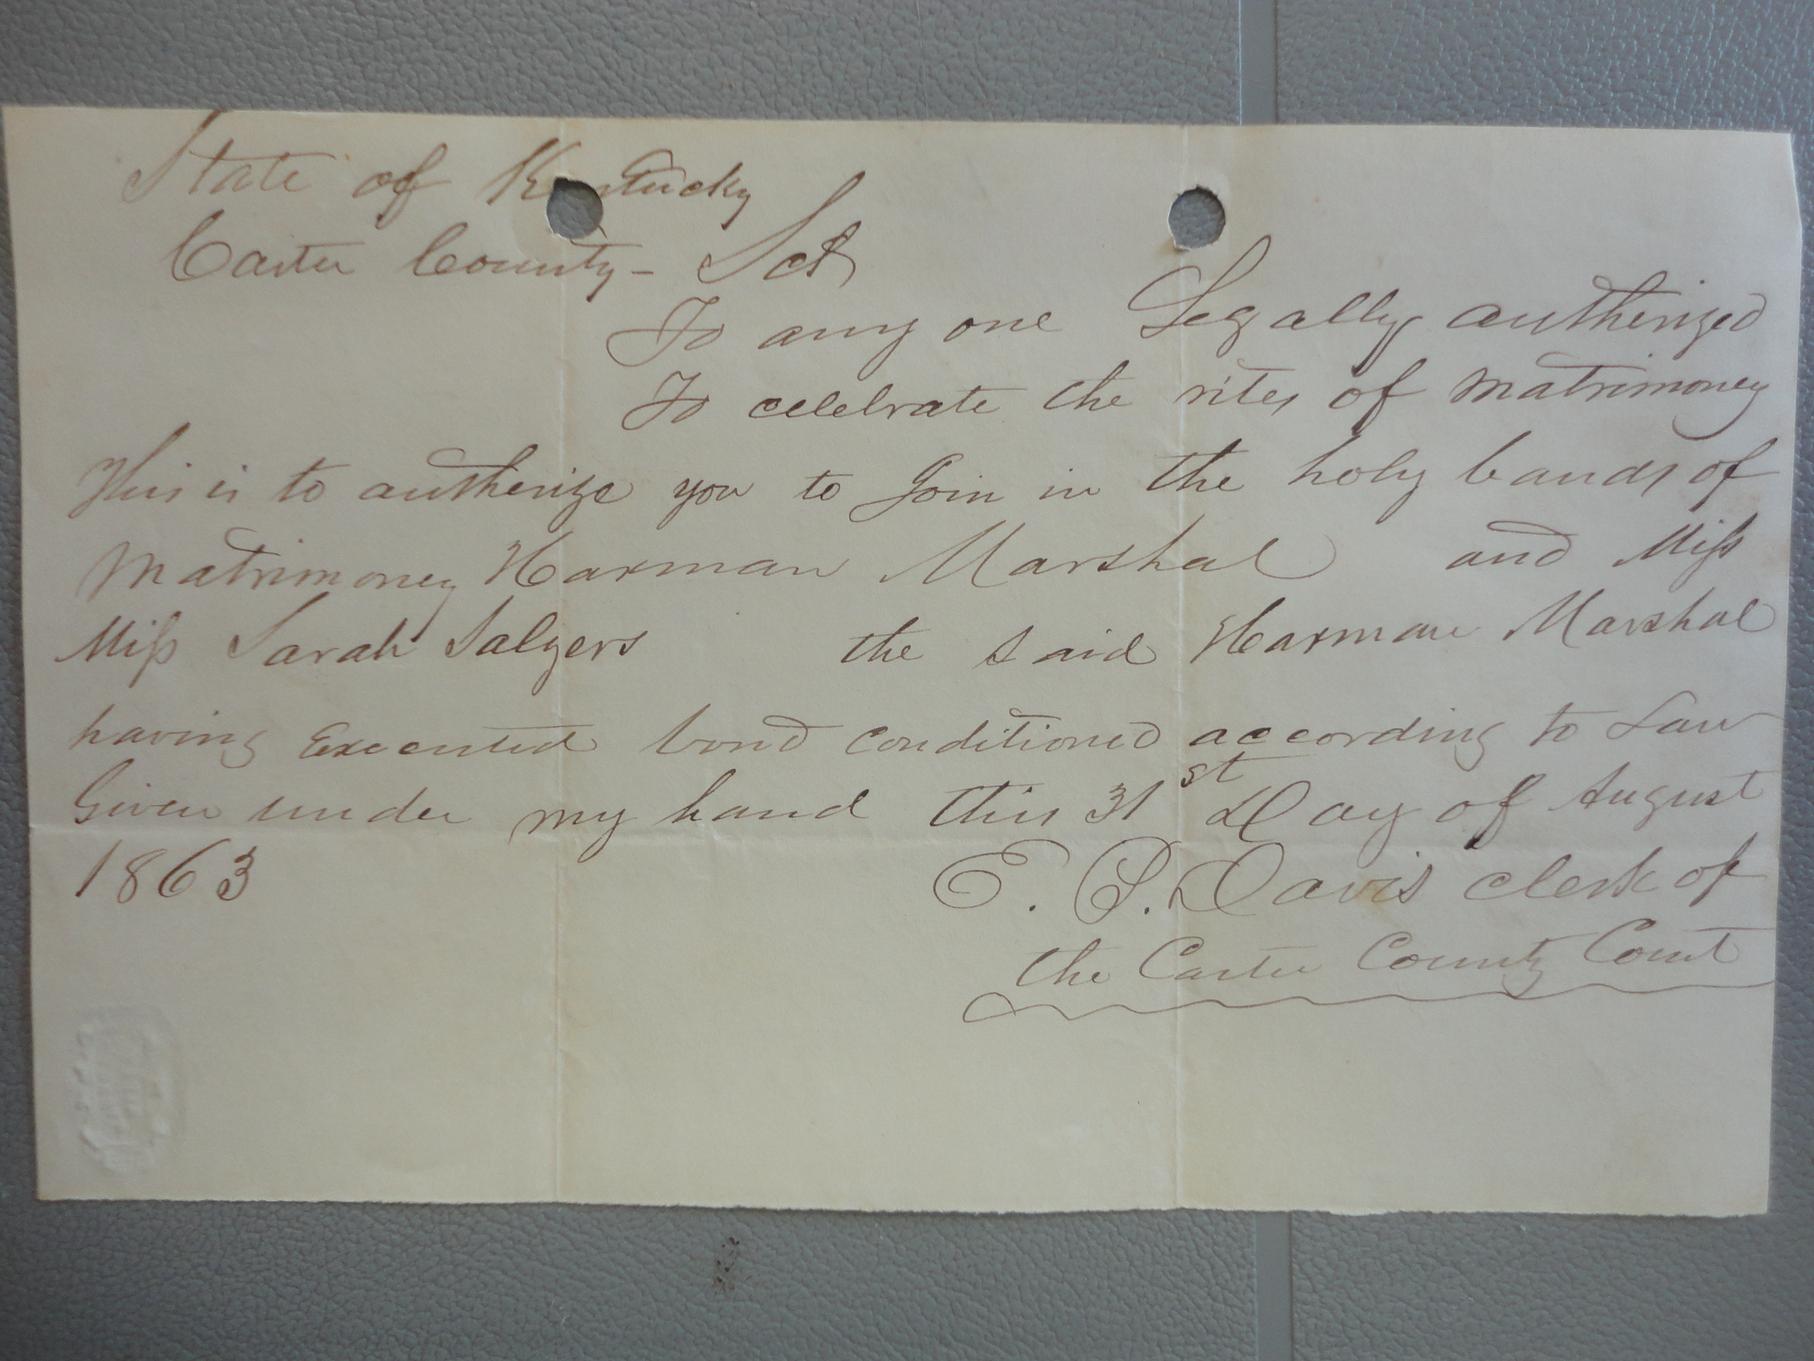 State of Kentucky
Carter County - Sct
To any one Legally autherized
To celebrate the rites of Matrimoney
This is to autherize you to Join in the holy bands of
Matrimoney Harman Marshal and Miss
Miss Sarah Salyers the said Harman Marshal
having Executed bond conditioned according to Law
Given under my hand this 31st Day of August
1863 E. P. Davis clerk of
the Carter County Court